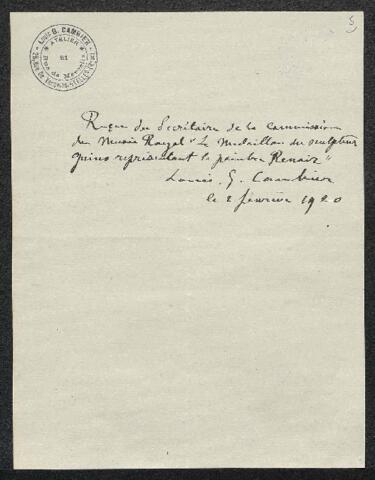 5
LOUIS G. CAMBIER
ATELIER
81
Rue de
Reçu du Secrétaire de la Commission
du Musée Royal "Le Médaillon du sculpteur
représentant le peintre Renoir"
Louis. G. Cambier
le 2 février 1920